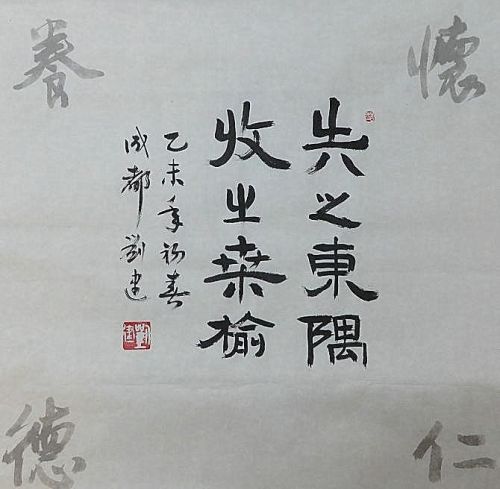 懷仁
養德
失之東隅
收之桑榆
乙未年初春
成都劉建